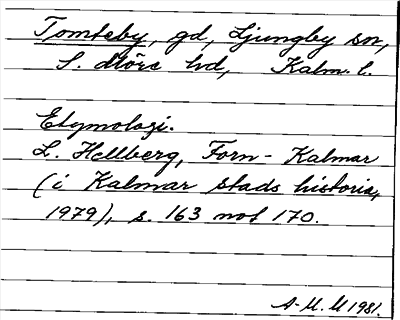 Tomteby, gd, Ljungby sn,
S. Möre hd, Kalm. l.
Etymologi.
L. Hellberg, Forn-Kalmar
(i Kalmar stads historia,
1979), s. 163 not 170.
A-M. M 1981.